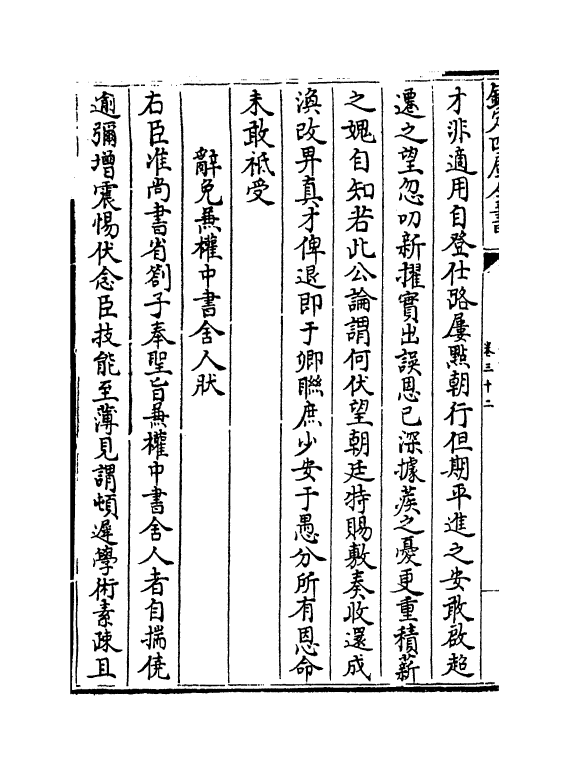 欽定四庫全書
卷三十二
才非適用自登仕路屢㸃朝行但期平進之安敢啟超
遷之望忽叨新擢實出誤恩已深據蒺之憂更重積薪
之媿自知若此公論謂何伏望朝廷特賜敷奏收還成
渙改畀真才俾退即于卿聯庶少安于愚分所有恩命
未敢祗受
辭免兼權中書舍人狀
右臣准尚書省劄子奉聖旨兼權中書舍人者自揣僥
逾彌增震惕伏念臣技能至薄見謂頓遲學術素疎且